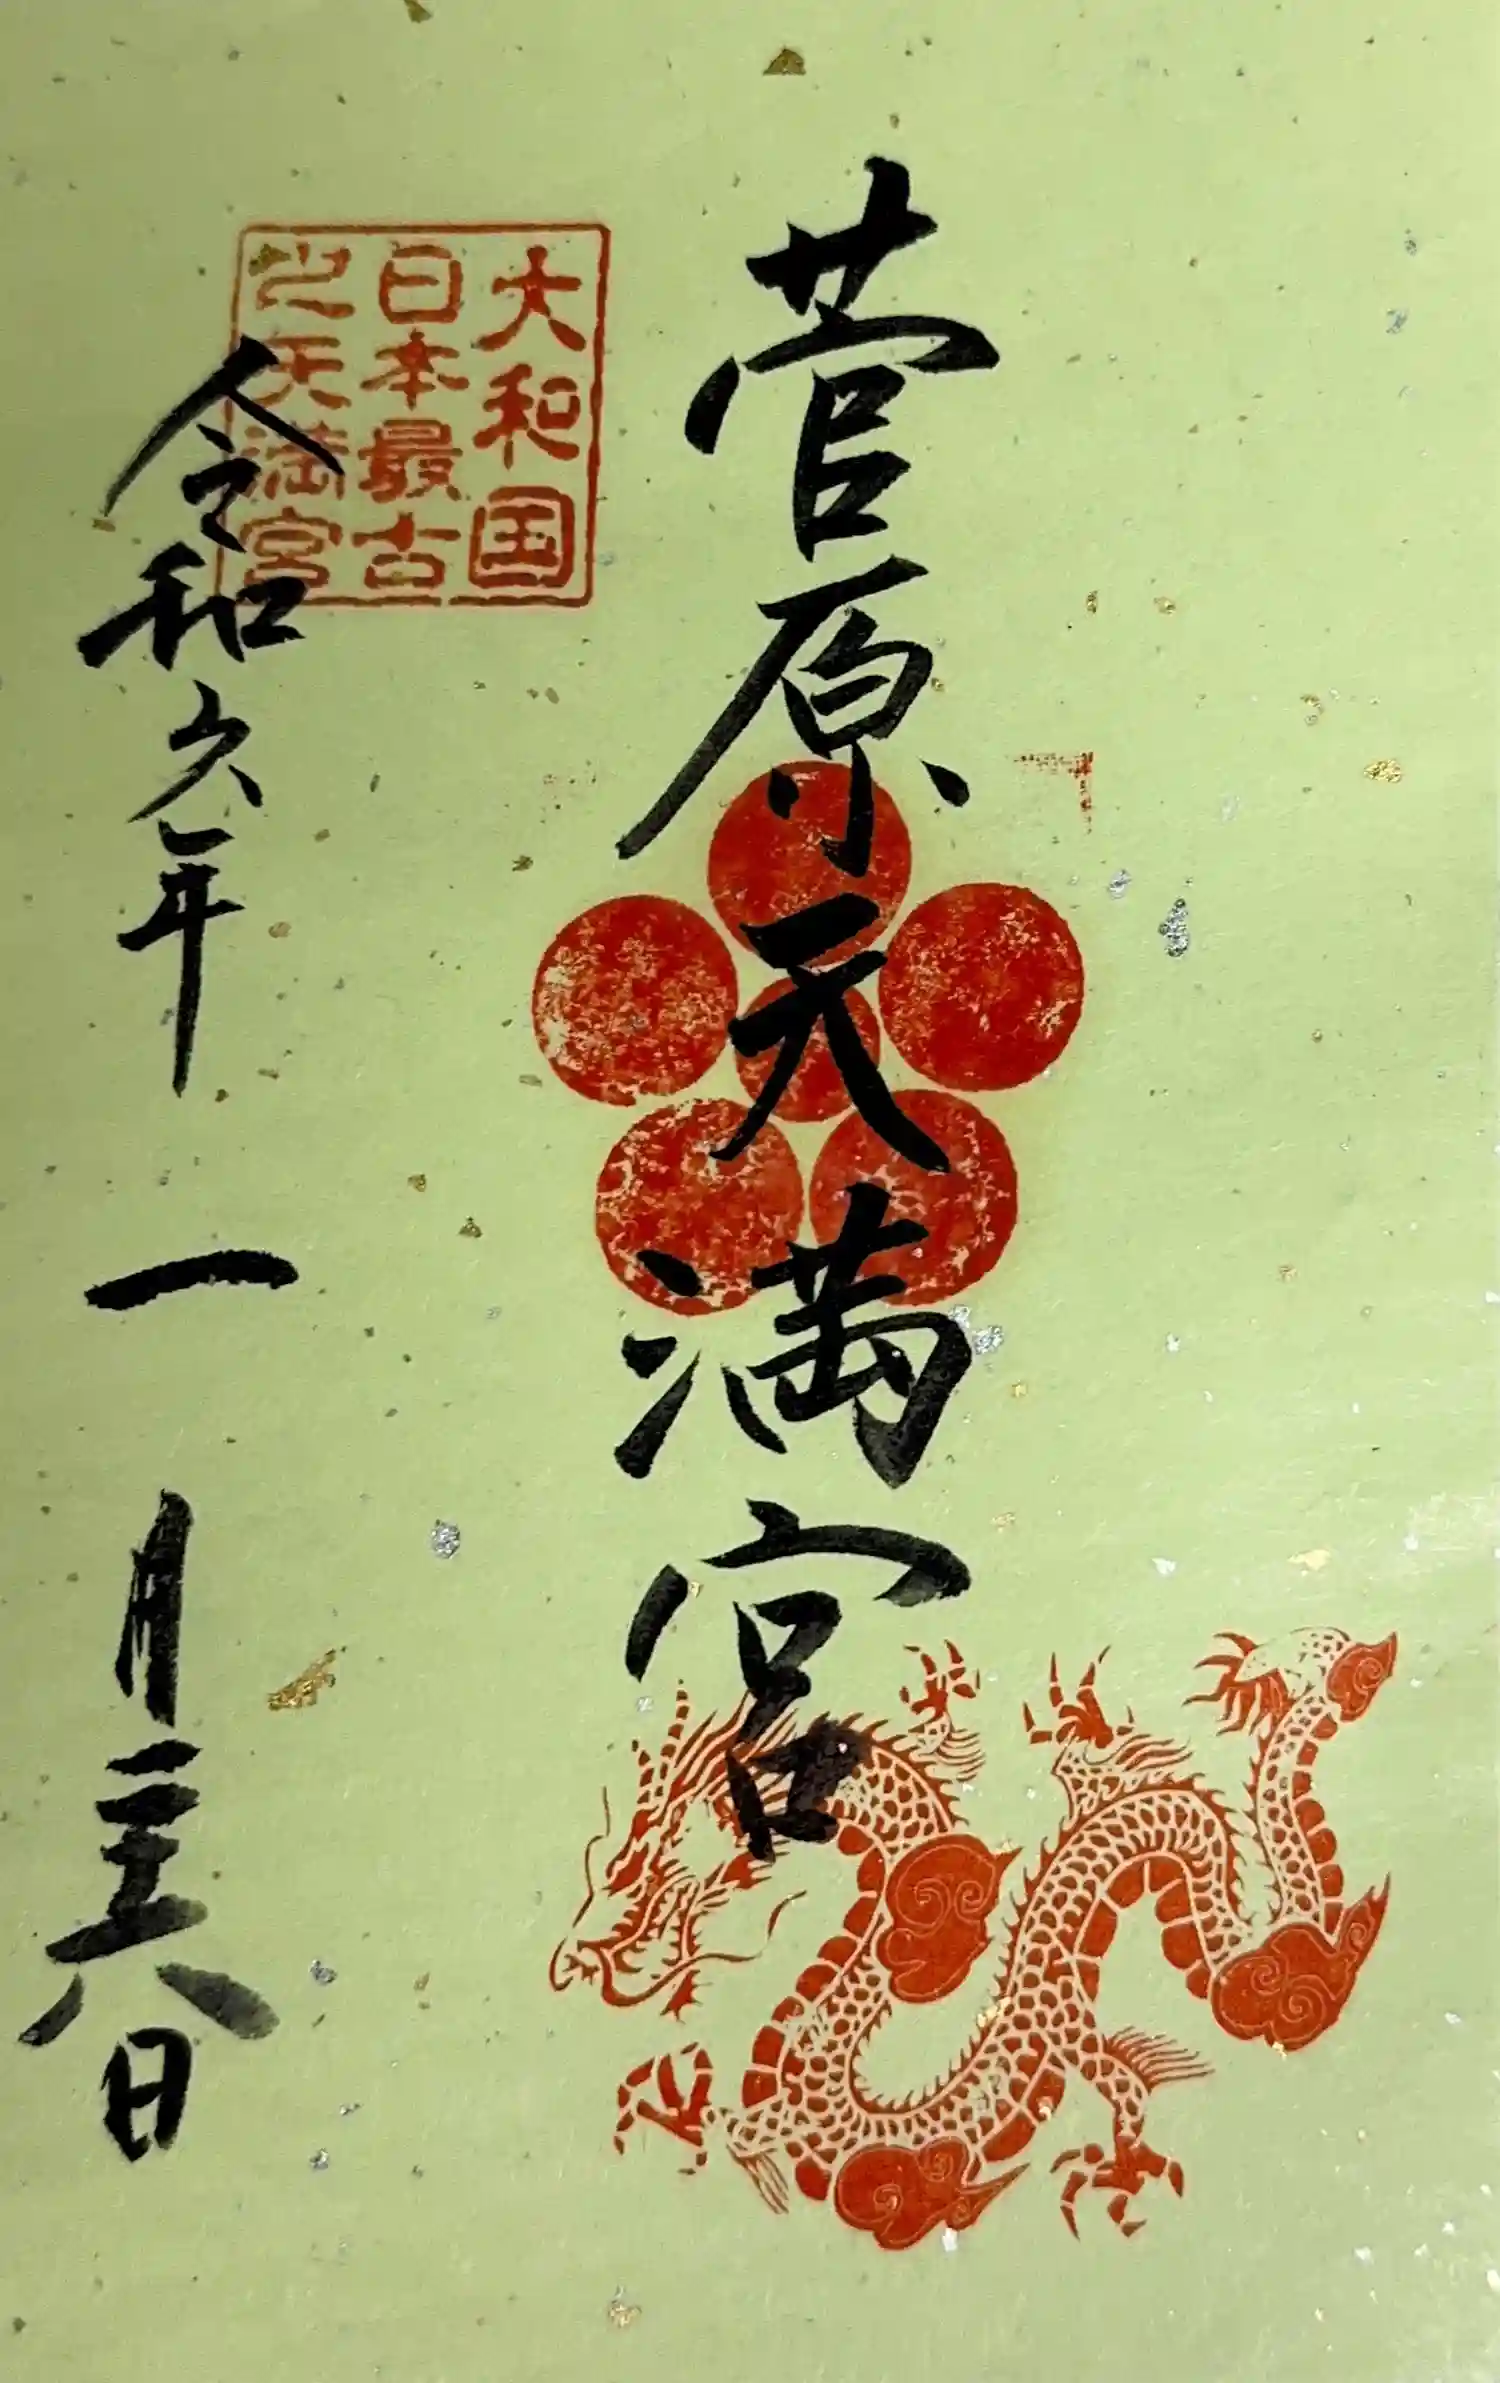 菅原天満宮
大和国
日本最古
之天満宮
令和六年一月二十六日